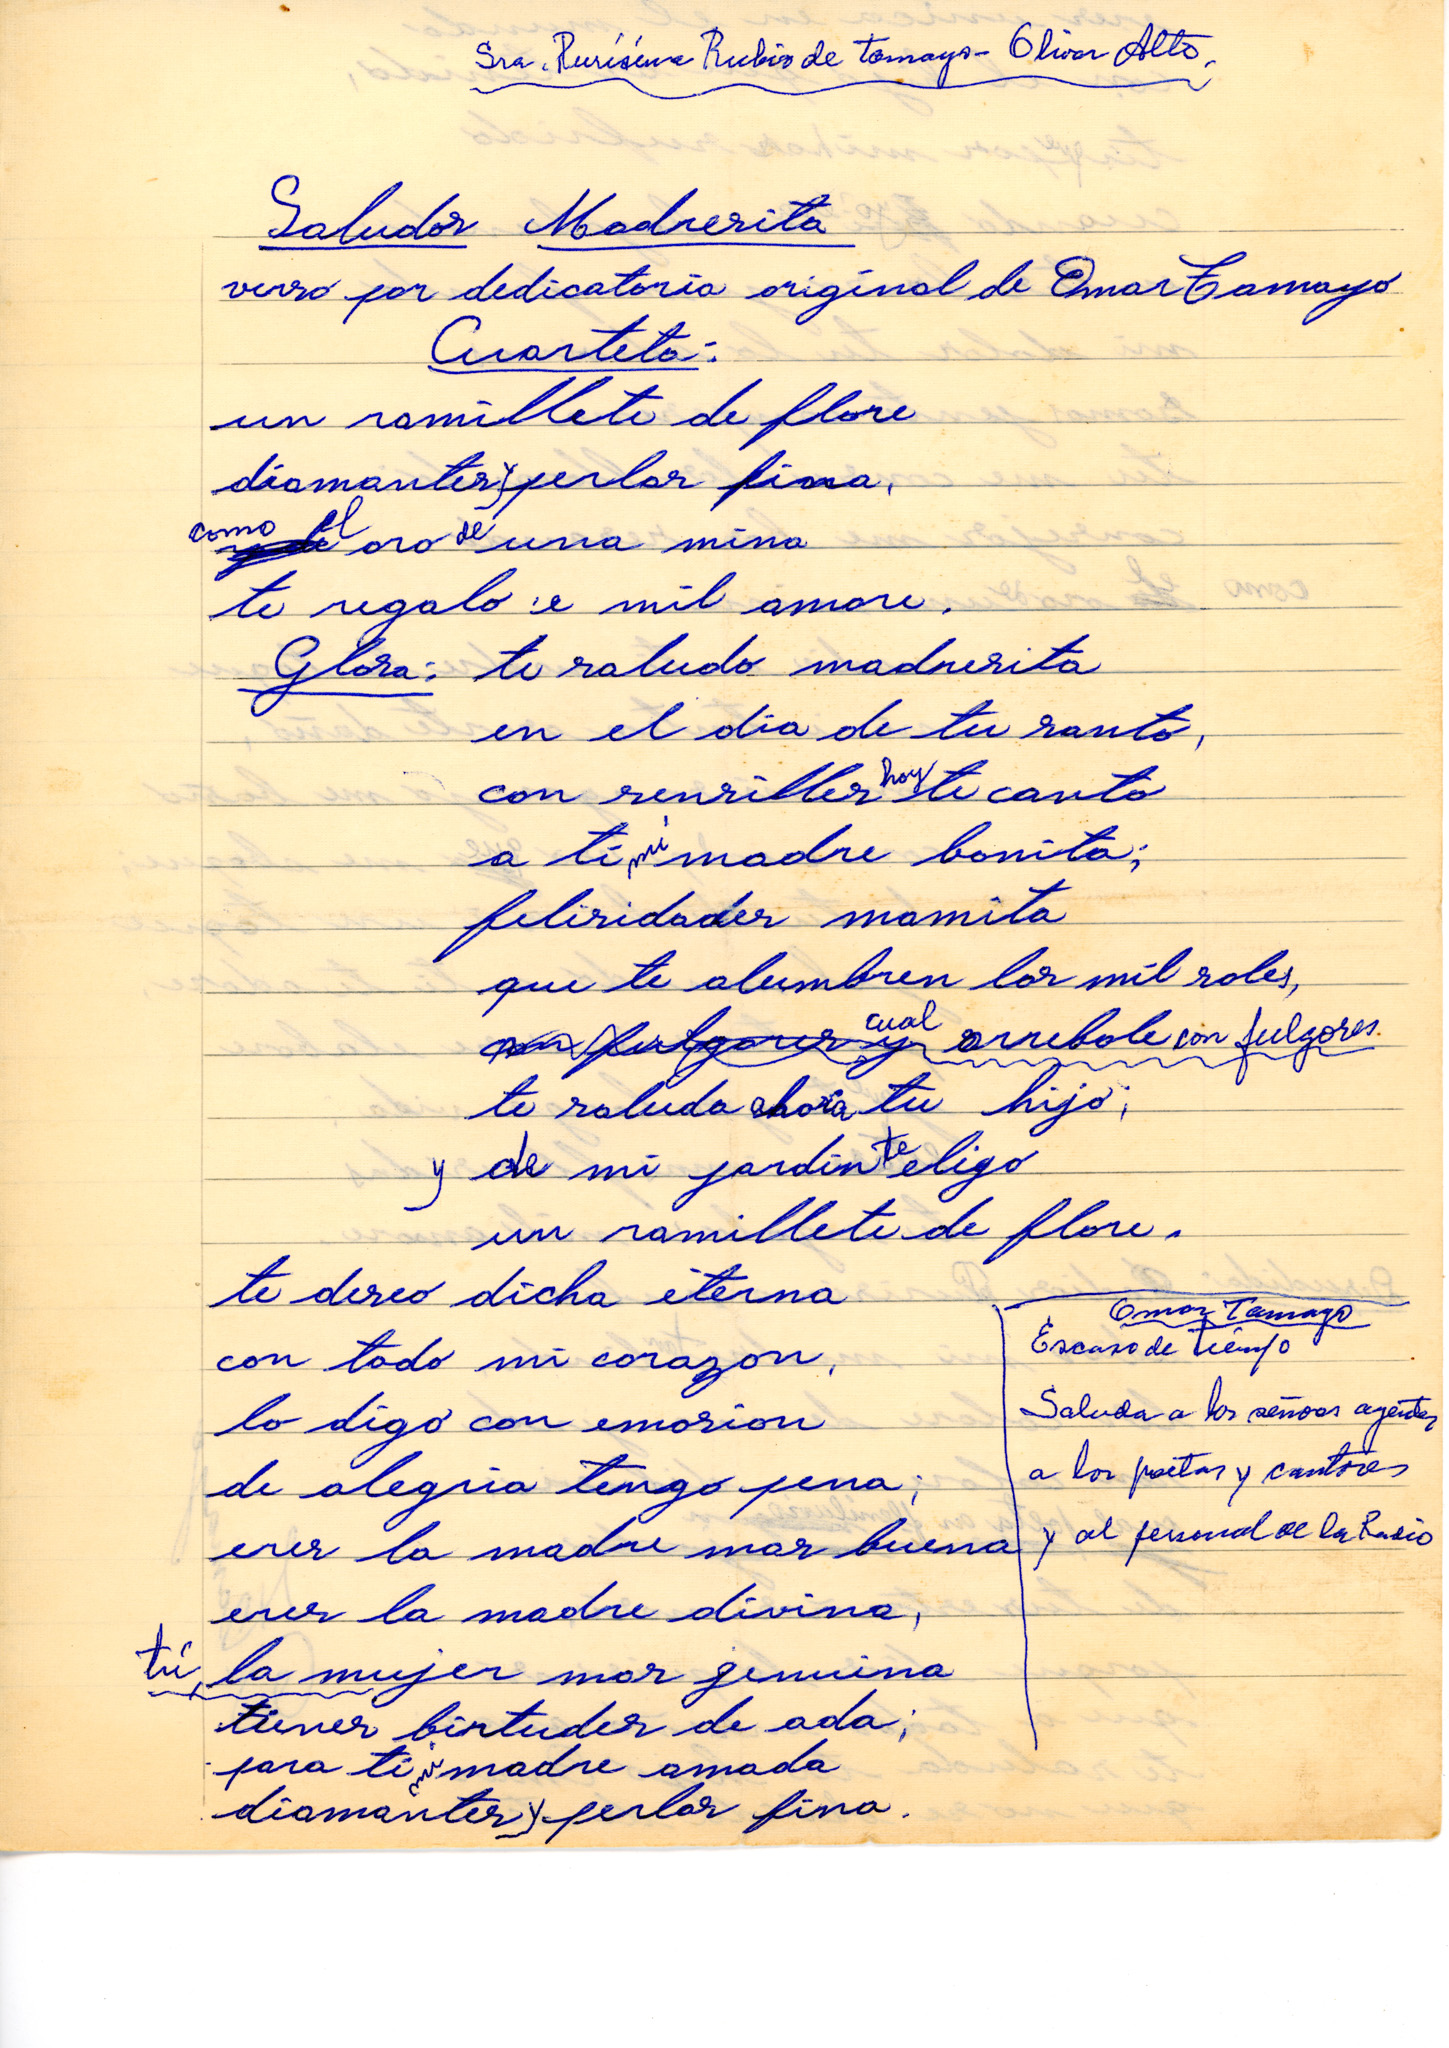 Sra. Purísima Rubio de Tamayo - Olivar Alto.
Saludos Madresita
verso por dedicatoria original de Omar Tamayo
Cuarteta:
un ramillete de flore
diamantes y perlas fina,
como el oro de una mina
te regalo e mil amore.
Glosa: te saludo madresita
en el dia de tu santo,
con sensilles hoy te canto
a ti mi madre bonita;
felisidades mamita
que te alumbren los mil soles,
con fulgores y cual arrebole con fulgores.
te saluda ahora tu hijo;
y de mi jardin te eligo
un ramillete de flore.
te deseo dicha eterna
con todo mi corazon,
lo digo con emosion
de alegria tengo pena;
eres la madre mas buena
eres la madre divina,
tú, la mujer mas genuina
tienes birtudes de ada;
para ti mi madre amada
diamantes y perlas fina.
Omar Tamayo
Escaso de tiempo
Saluda a los señores agentes
a los poetas y cantores
y al personal de la Radio